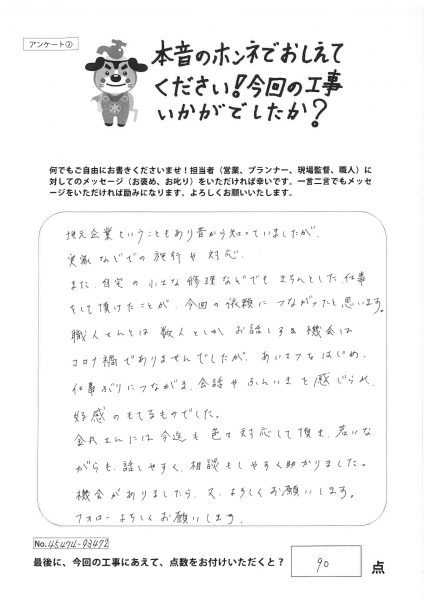 アンケート②
本音のホンネでおしえて
ください!今回の工事
いかがでしたか?
何でもご自由にお書きくださいませ!担当者(営業、プランナー、現場監督、職人)に
対してのメッセージ(お褒め、お叱り)をいただければ幸いです。一言二言でもメッセ
ージをいただければ励みになります。よろしくお願いいたします。
地元企業ということもあり昔から知っていましたが、
実家などでの施行や対応、
また、自宅の小さな修理などでも きちんとした仕事
をして頂けたことが、今回の依頼に つながったと思います。
職人さんとは 数人としか お話しする 機会は
コロナ禍でありませんでしたが、あいさつをはじめ、
仕事ぶりにつながる、会話や ふんいきを感じられ、
好感のもてるものでした。
金井さんには 今迄も 色々 対応して頂き、若いな
がらも、話しやすく、相談もしやすく助かりました。
機会がありましたら、又、よろしくお願いします。
フォローよろしくお願いします。
No.45474-93472
最後に、今回の工事にあえて、点数をお付けいただくと?
90
点